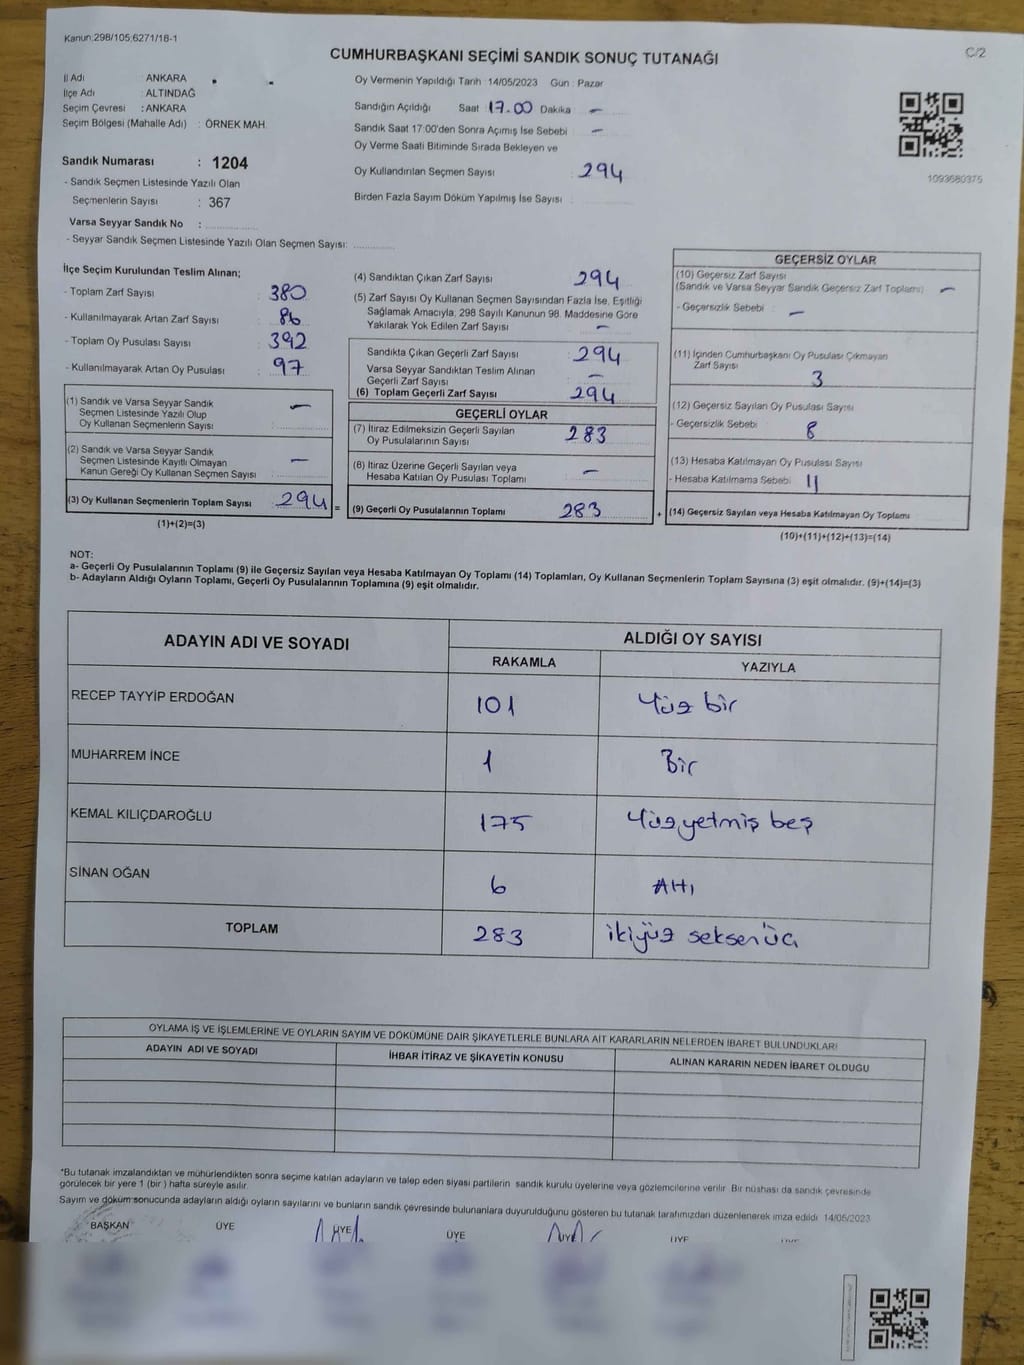 Kanun:298/105,6271/18-1
C/2
CUMHURBAŞKANI SEÇİMİ SANDIK SONUÇ TUTANAĞI
İl Adı : ANKARA
İlçe Adı : ALTINDAĞ
Seçim Çevresi : ANKARA
Seçim Bölgesi (Mahalle Adı) : ÖRNEK MAH.
Sandık Numarası : 1204
- Sandık Seçmen Listesinde Yazılı Olan
Seçmenlerin Sayısı : 367
Varsa Seyyar Sandık No :
- Seyyar Sandık Seçmen Listesinde Yazılı Olan Seçmen Sayısı:
Oy Vermenin Yapıldığı Tarih 14/05/2023 Gün : Pazar
Sandığın Açıldığı Saat 17.00 Dakika -
Sandık Saat 17:00'den Sonra Açımış İse Sebebi -
Oy Verme Saati Bitiminde Sırada Bekleyen ve
Oy Kullandırılan Seçmen Sayısı 294
Birden Fazla Sayım Döküm Yapılmış İse Sayısı
1093680375
İlçe Seçim Kurulundan Teslim Alınan;
- Toplam Zarf Sayısı : 380
- Kullanılmayarak Artan Zarf Sayısı : 86
- Toplam Oy Pusulası Sayısı : 392
- Kullanılmayarak Artan Oy Pusulası : 97
(1) Sandık ve Varsa Seyyar Sandık
Seçmen Listesinde Yazılı Olup
Oy Kullanan Seçmenlerin Sayısı : -
(2) Sandık ve Varsa Seyyar Sandık
Seçmen Listesinde Kayıtlı Olmayan
Kanun Gereği Oy Kullanan Seçmen Sayısı : -
(3) Oy Kullanan Seçmenlerin Toplam Sayısı 294 =
(1)+(2)=(3)
(4) Sandıktan Çıkan Zarf Sayısı 294
(5) Zarf Sayısı Oy Kullanan Seçmen Sayısından Fazla İse, Eşitliği
Sağlamak Amacıyla, 298 Sayılı Kanunun 98. Maddesine Göre
Yakılarak Yok Edilen Zarf Sayısı -
Sandıkta Çıkan Geçerli Zarf Sayısı : 294
Varsa Seyyar Sandıktan Teslim Alınan
Geçerli Zarf Sayısı : -
(6) Toplam Geçerli Zarf Sayısı 294
GEÇERLİ OYLAR
(7) İtiraz Edilmeksizin Geçerli Sayılan
Oy Pusulalarının Sayısı : 283
(8) İtiraz Üzerine Geçerli Sayılan veya
Hesaba Katılan Oy Pusulası Toplamı : -
(9) Geçerli Oy Pusulalarının Toplamı 283 +
GEÇERSİZ OYLAR
(10) Geçersiz Zarf Sayısı
(Sandık ve Varsa Seyyar Sandık Geçersiz Zarf Toplamı) -
- Geçersizlik Sebebi : -
(11) İçinden Cumhurbaşkanı Oy Pusulası Çıkmayan
Zarf Sayısı 3
(12) Geçersiz Sayılan Oy Pusulası Sayısı
- Geçersizlik Sebebi 8
(13) Hesaba Katılmayan Oy Pusulası Sayısı
- Hesaba Katılmama Sebebi 11
(14) Geçersiz Sayılan veya Hesaba Katılmayan Oy Toplamı
(10)+(11)+(12)+(13)=(14)
NOT:
a- Geçerli Oy Pusulalarının Toplamı (9) ile Geçersiz Sayılan veya Hesaba Katılmayan Oy Toplamı (14) Toplamları, Oy Kullanan Seçmenlerin Toplam Sayısına (3) eşit olmalıdır. (9)+(14)=(3)
b- Adayların Aldığı Oyların Toplamı, Geçerli Oy Pusulalarının Toplamına (9) eşit olmalıdır.
ADAYIN ADI VE SOYADI
ALDIĞI OY SAYISI
RAKAMLA YAZIYLA
RECEP TAYYİP ERDOĞAN 101 Yüz bir
MUHARREM İNCE 1 Bir
KEMAL KILIÇDAROĞLU 175 Yüzyetmiş beş
SİNAN OĞAN 6 Altı
TOPLAM 283 ikiyüz seksenüç
OYLAMA İŞ VE İŞLEMLERİNE VE OYLARIN SAYIM VE DÖKÜMÜNE DAİR ŞİKAYETLERLE BUNLARA AİT KARARLARIN NELERDEN İBARET BULUNDUKLARI
ADAYIN ADI VE SOYADI İHBAR İTİRAZ VE ŞİKAYETİN KONUSU ALINAN KARARIN NEDEN İBARET OLDUĞU
*Bu tutanak imzalandıktan ve mühürlendikten sonra seçime katılan adayların ve talep eden siyasi partilerin sandık kurulu üyelerine veya gözlemcilerine verilir. Bir nüshası da sandık çevresinde
görülecek bir yere 1 (bir ) hafta süreyle asılır.
Sayım ve döküm sonucunda adayların aldığı oyların sayılarını ve bunların sandık çevresinde bulunanlara duyurulduğunu gösteren bu tutanak tarafımızdan düzenlenerek imza edildi 14/05/2023
BAŞKAN ÜYE ÜYE ÜYE ÜYE ÜYE